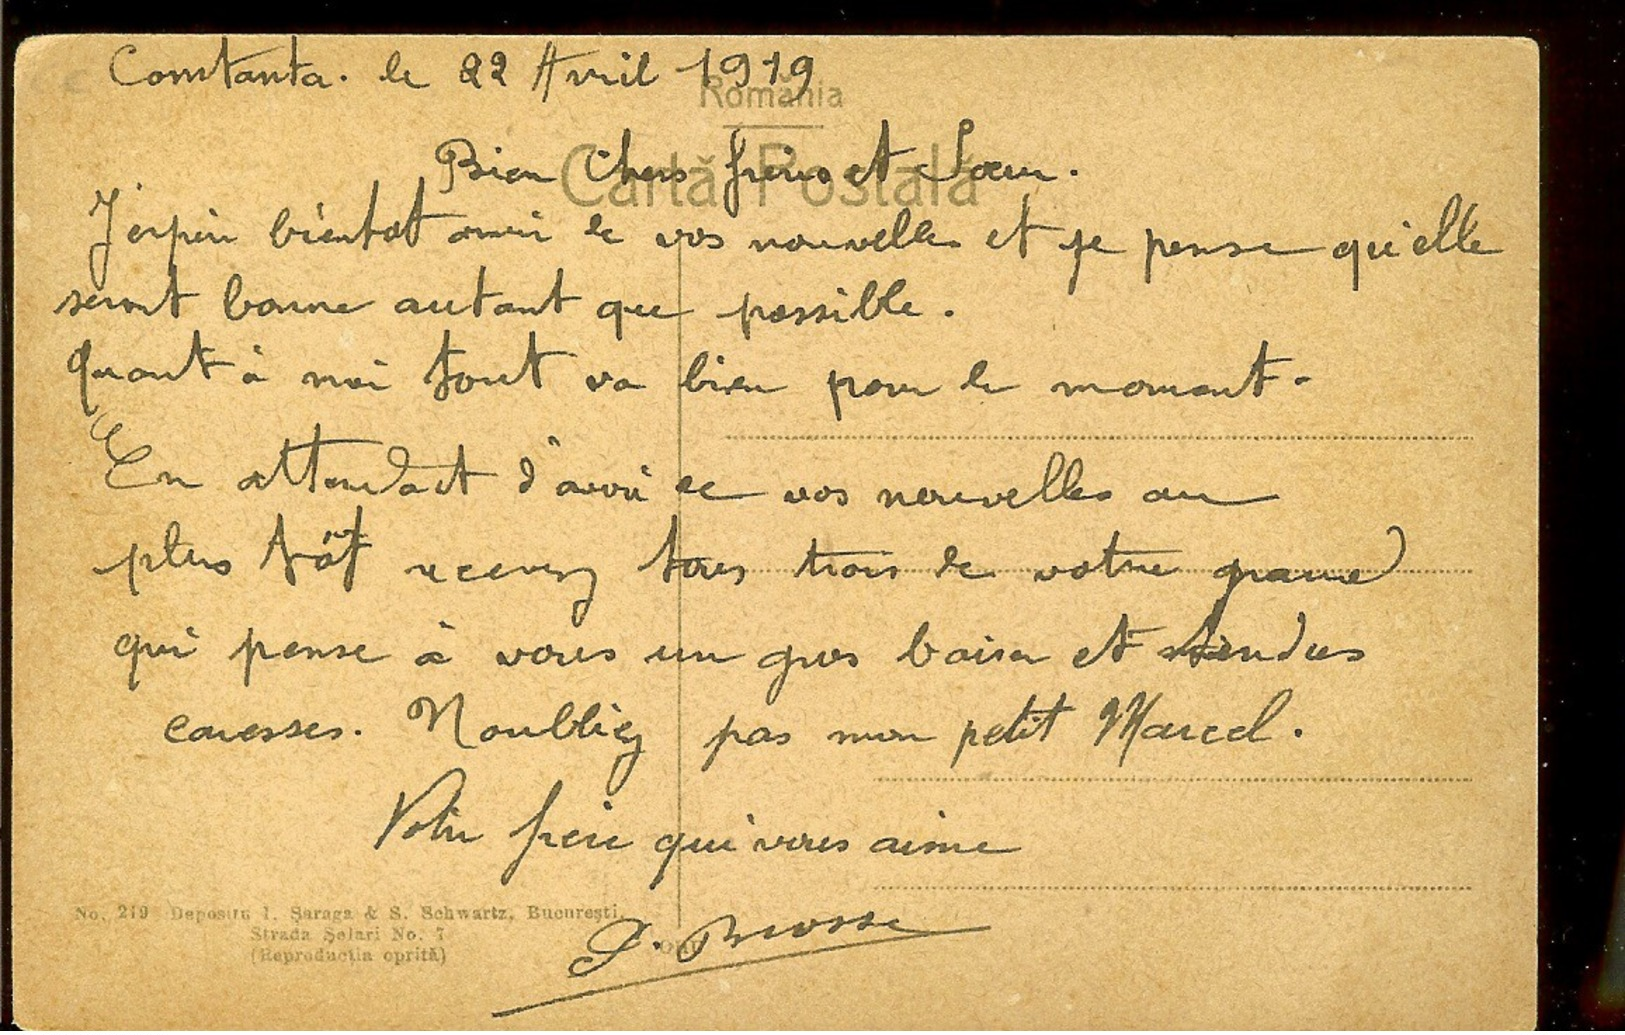 Constanta. le 22 Avril 1919
România
Carta Postală
Bien Chers frères et Sœur.
J'espère bientot avoir de vos nouvelles et je pense qu'elle
seront bonne autant que possible.
Quant à moi tout va bien pour le moment.
En attendant d'avoir de vos nouvelles au
plus tôt recevez tous trois de votre
qui pense à vous un gros baiser et tendres
caresses. N'oubliez pas mon petit Marcel.
Votre frère qui vous aime
Brosse
No. 219 Depositu I. Șaraga & S. Schwartz, București
Strada Șelari No. 7
(Reproducția oprită)